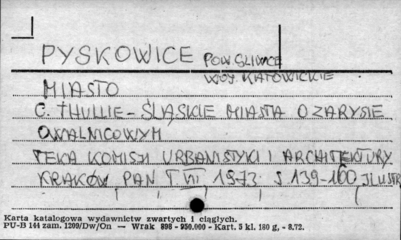 PYSKOWICE POW GLIWICE
WOJ. KATOWICKIE
MIASTO
C. THULLIE - ŚLĄSKIE MIASTA O ZARYSIE
OWALNICOWYM
TEKA KOMISJI URBANISTYKI I ARCHITEKTURY
KRAKÓW PAN T VII 1973 S 139-160 ILUSTR
Karta katalogowa wydawnictw zwartych i ciągłych.
PU-B 144 zam. 1299/Dw/On — Wrak 898 - 950.000 - Kart. 3 kl. 180 g. - 8.72.